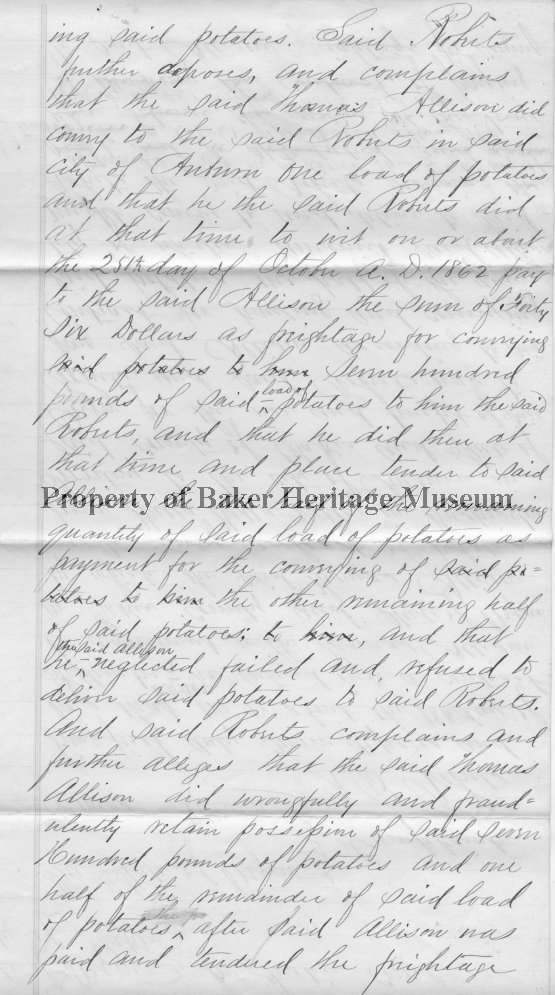 ing said potatoes. Said Roberts
further deposes, and complains
that the said Thomas Allison did
convey to the said Roberts in said
city of Auburn one load of potatoes
and that he the said Roberts did
at that time to wit on or about
the 25th day of October A. D. 1862 pay
to the said Allison the sum of Forty
Six Dollars as freightage for conveying
said potatoes to him seven hundred
pounds of said load of potatoes to him the said
Roberts, and that he did then at
that time and place tender to said
Property of Baker Heritage Museum
Allison the one half of the remaining
quantity of said load of potatoes as
payment for the conveying of said po=
tatoes to him the other remaining half
of said potatoes; to him, and that
he the said Allison neglected failed and refused to
deliver said potatoes to said Roberts.
And said Roberts complains and
further alleges that the said Thomas
Allison did wrongfully and fraud=
ulently retain possession of said seven
Hundred pounds of potatoes and one
half of the remainder of said load
of potatoes after said Allison was
paid and tendered the freightage